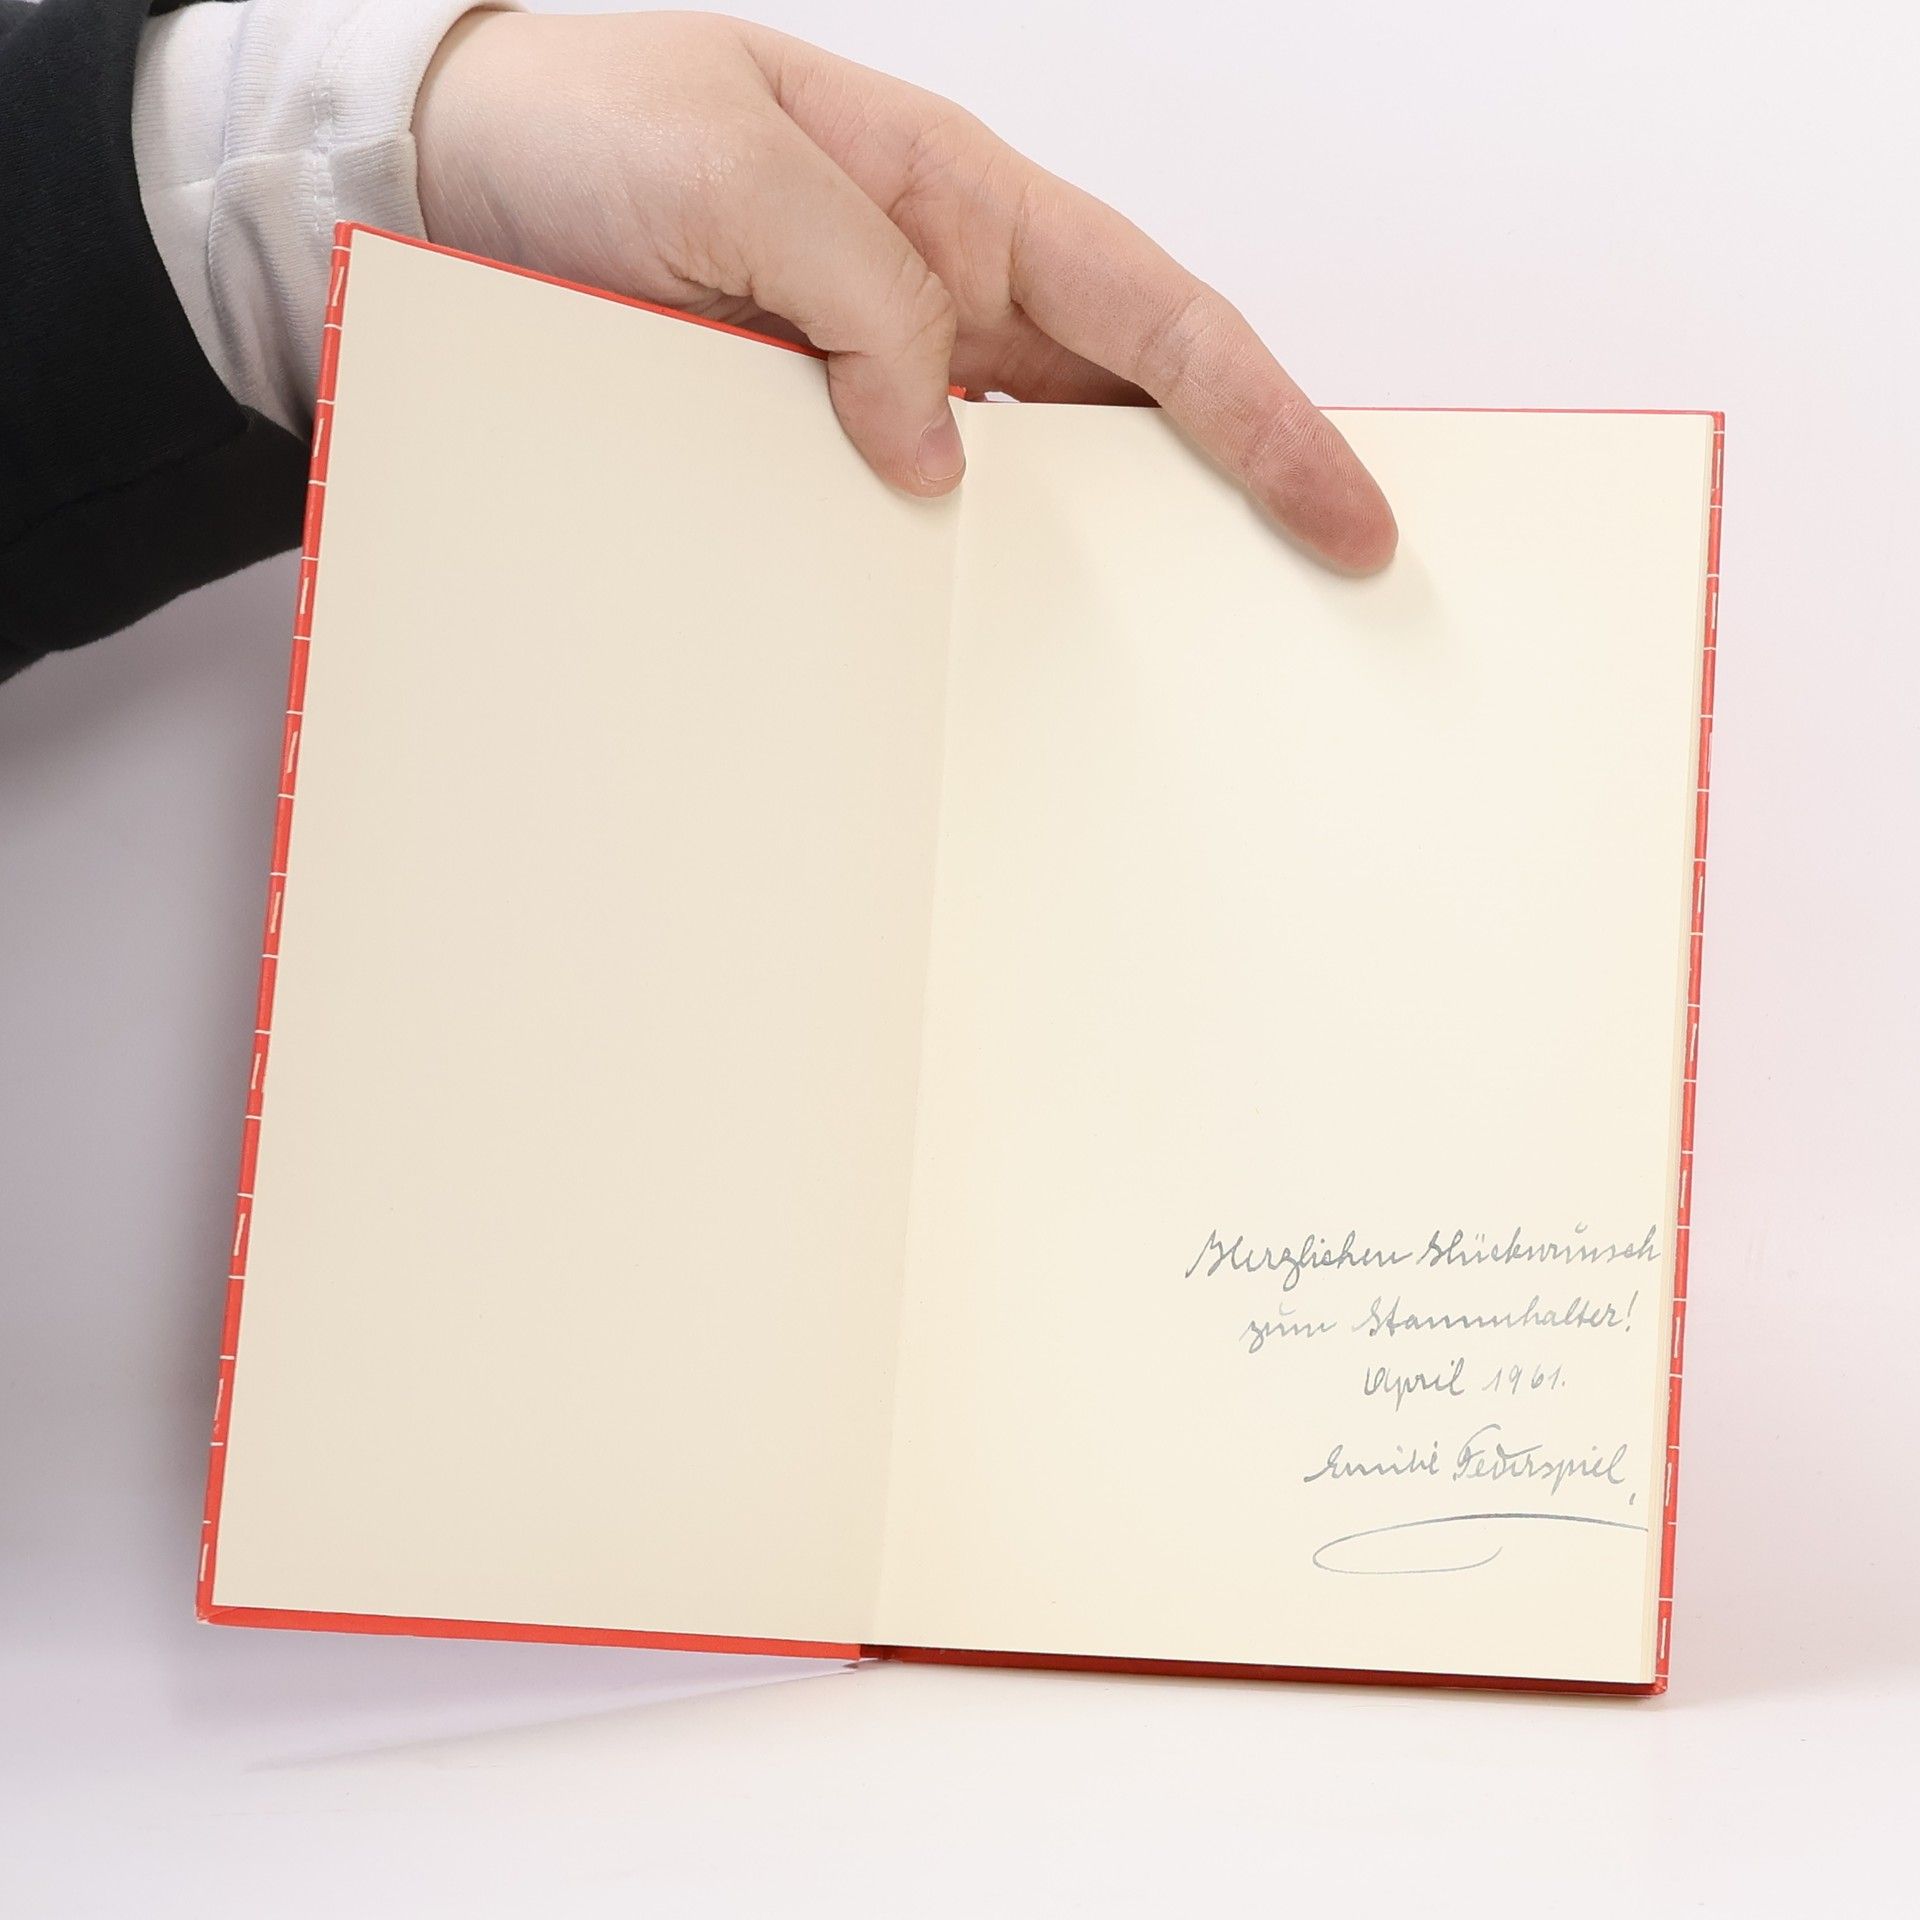 Herzlichen Glückwunsch
zum Stammhalter!
April 1961.
Emilie Federspiel,